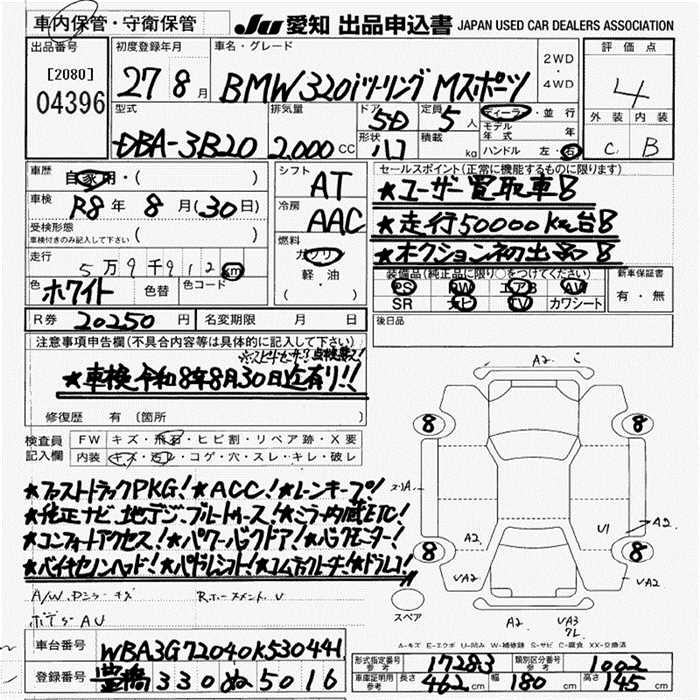 車内保管・守衛保管
JU 愛知 出品申込書 JAPAN USED CAR DEALERS ASSOCIATION
出品番号
[2080]
04396
初度登録年月
27 8月
車名・グレード
BMW320iツーリング Mスポーツ
2WD
・
4WD
評価点
4
外装 内装
C B
型式
DBA-3B20
排気量
2,000 CC
ドア
5D
形状
ハコ
定員
5 人
積載
kg
ディーラー・並行
モデル年式 年
ハンドル 左・右
車歴
自家用・( )
車検
R8年 8月(30日)
受検形態
車検付きのみ記入して下さい ( )
走行
5万9千912km
色
ホワイト
色替
色コード
シフト
AT
冷房
AAC
燃料
ガソリン
軽・油
( )
セールスポイント(正常に機能するものに限ります)
★ユーザー買取車!!
★走行50000km台!!
★オクション初出品!!
装備品(純正品に限り○をつけてください)
PS PW エアB AW
SR ナビ TV カワシート
新車保証書
有・無
後日品
R券 20250 円
名変期限 月 日
注意事項申告欄(不具合内容等は具体的に記入して下さい)
★車検令和8年8月30日迄有り!!
修復歴 有 〔箇所
検査員
記入欄
FW キズ・飛石・ヒビ割・リペア跡・X要
内装 キズ・汚レ・コゲ・穴・スレ・キレ・破レ
★ファストトラックPKG!★ACC!★レーンキープ!
★純正ナビ、地デジ、ブルートゥース!★ミラー内蔵ETC!
★コンフォートアクセス!★パワーバックドア!★バックモニター!
★バイキセノンヘッド!★パドルシフト!★コムテックレーダー!★ドラレコ!
ボデーAU
A2
8 8
8 8
A2
U1
A2
UA2
UA2
A2
UA3
スペア
A-キズ E-エクボ U-凹み W-補修跡 S-サビ C-腐食 XX-交換済
車台番号 WBA3G72040K530441
登録番号 豊橋330ぬ5016
形式指定番号 参考 17283
類別区分番号 参考 1002
車庫証明用 参考 長さ 462cm 幅 180cm 高さ 145cm